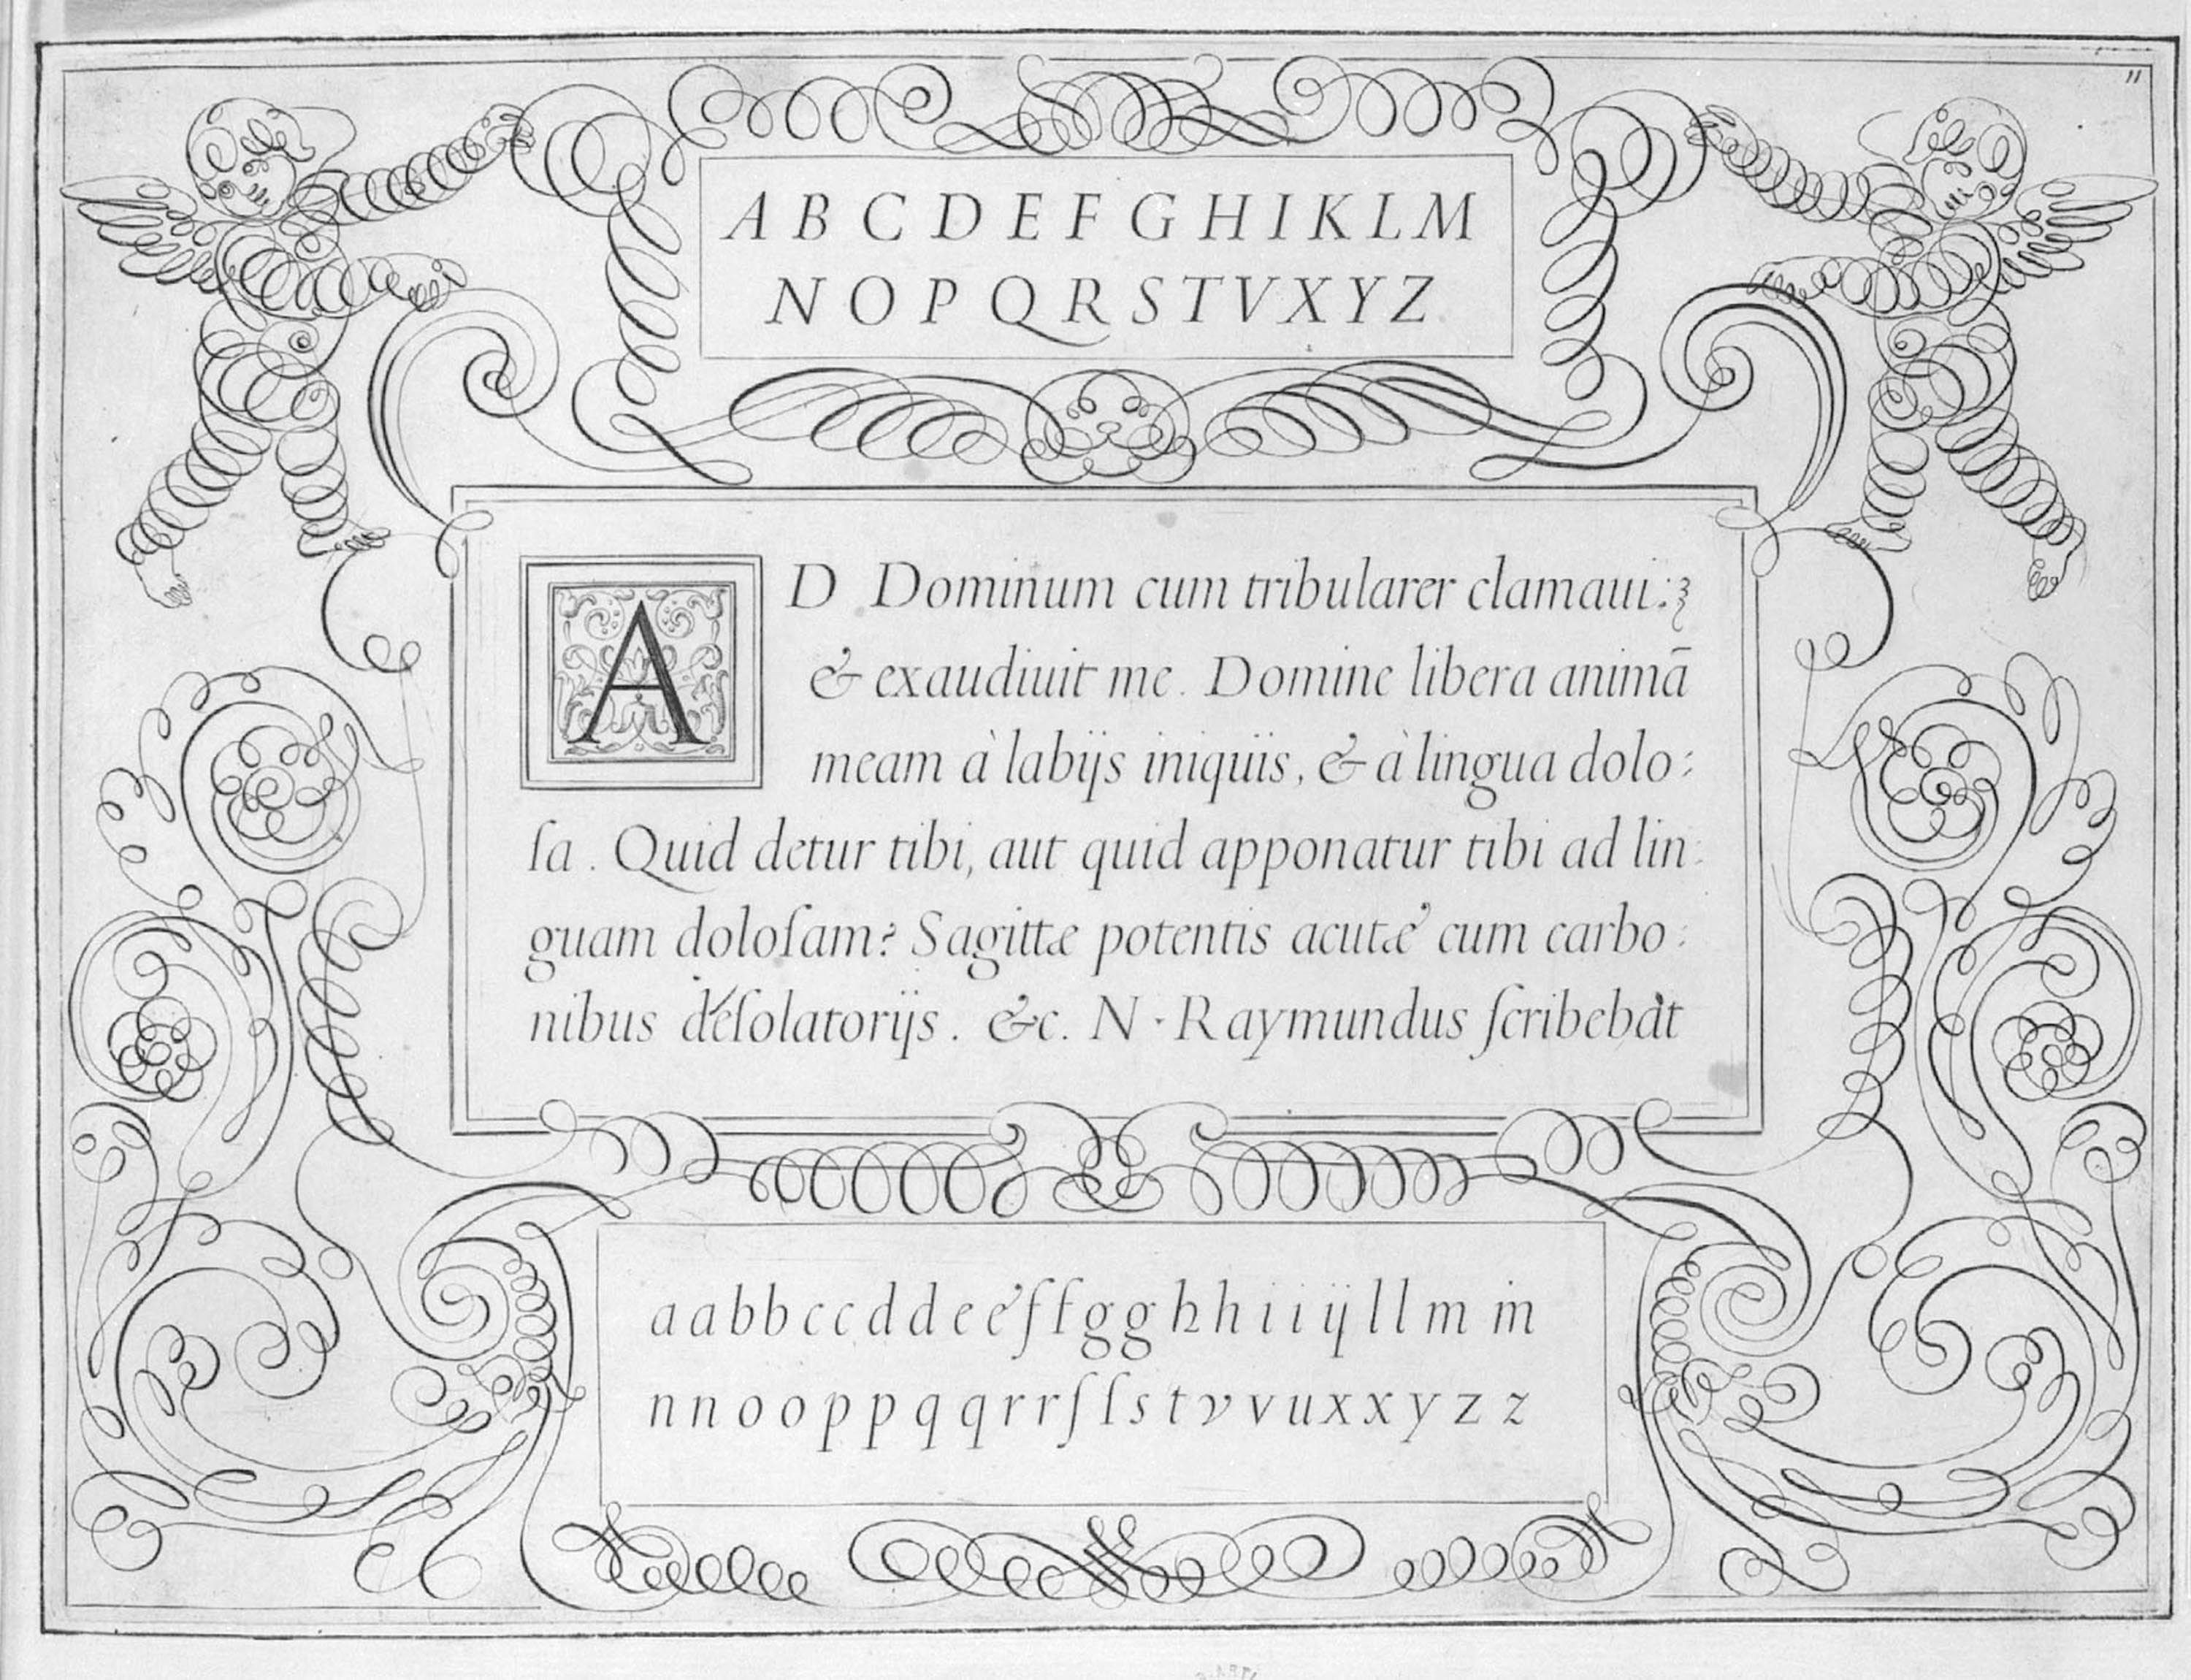 11
A B C D E F G H I K L M
N O P Q R S T V X Y Z
AD Dominum cum tribularer clamaui:
& exaudiuit me. Domine libera animā
meam à labijs iniquis, & à lingua dolo:
ſa. Quid detur tibi, aut quid apponatur tibi ad lin:
guam doloſam? Sagittæ potentis acutæ cum carbo:
nibus deſolatorijs. &c. N · Raymundus ſcribebat
a a b b c c d d e e f f g g h h i i ij l l m m
n n o o p p q q r r ſ ſ s t v v u x x y z z